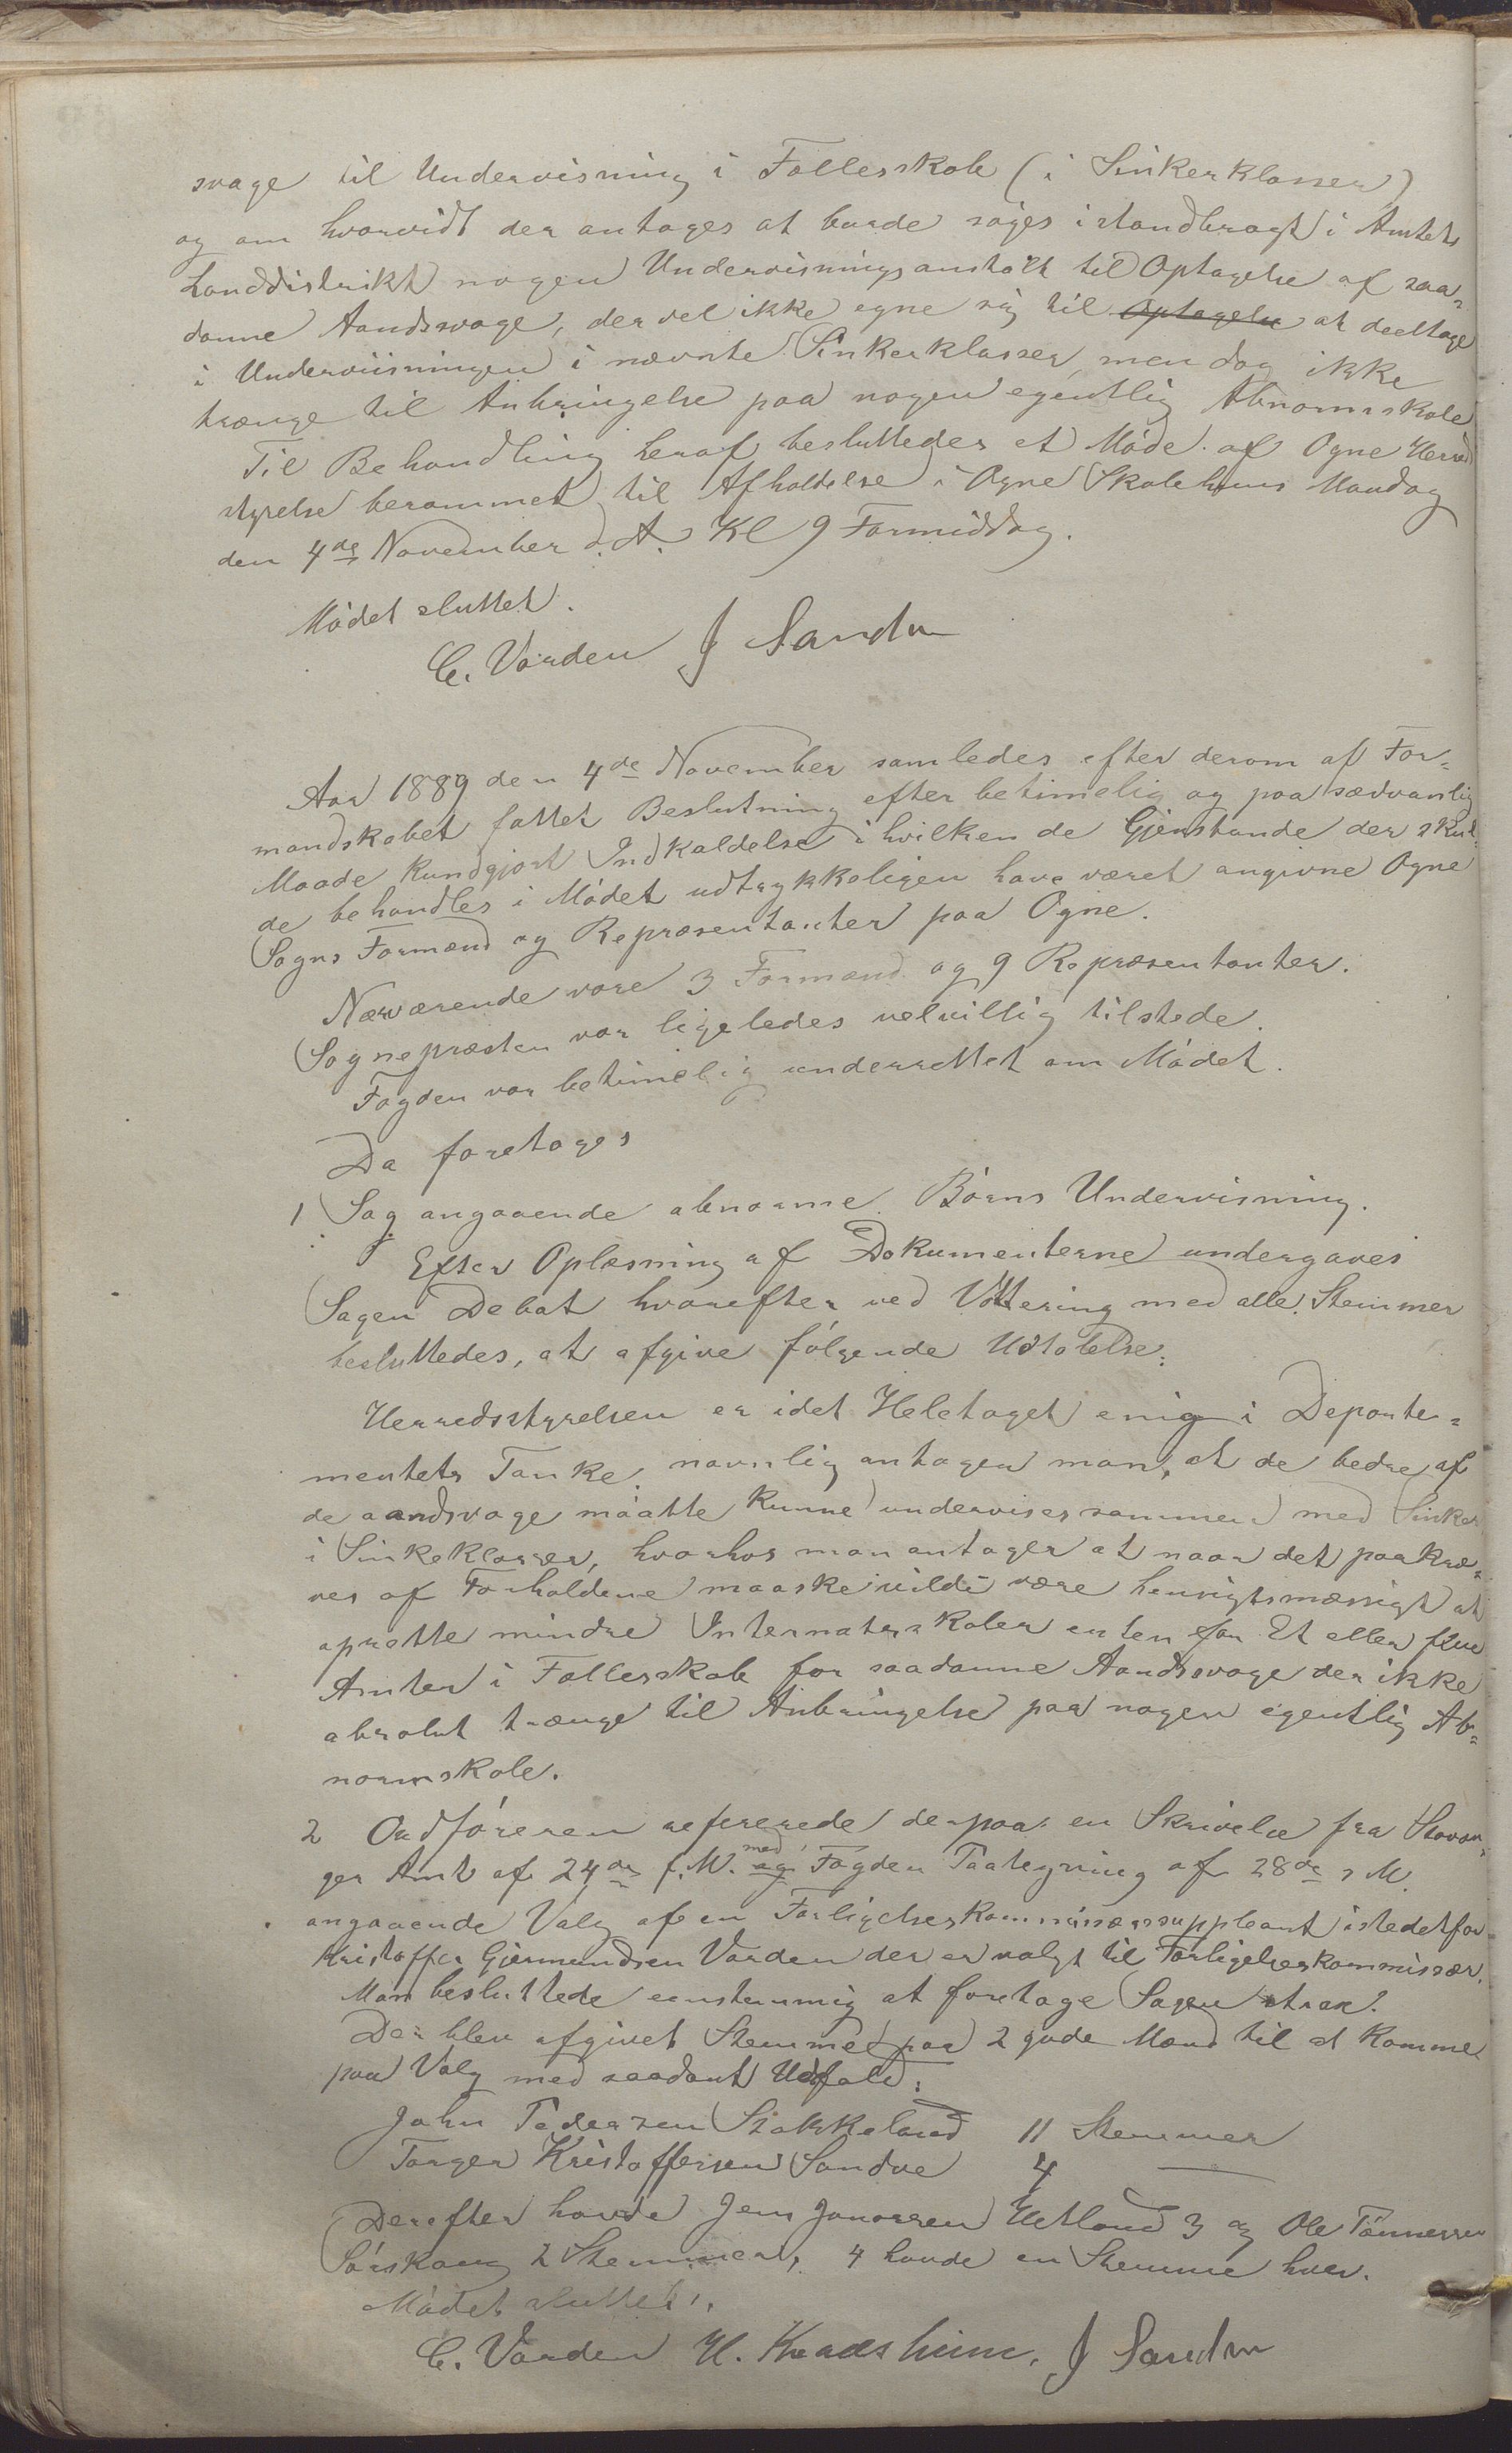 svage til Undervisning i Fællesskole (i Sinkerklasser)
og om hvorvidt der antages at burde søges istandbragt i Amtets
Landdistrikt nogen Undervisningsanstalt til Optagelse af saa-
danne Aandssvage, der vel ikke egne sig til Optagelse at deeltage
i Underviisningen i nævnte Sinkerklasser, men dog ikke
trænge til Anbringelse paa nogen egentlig Abnormskole
Til Behandling heraf besluttedes et Møde af Ogne Herred
styrelse berammet til Afholdelse i Ogne Skolehuus Mandag
den 4de November d. A. Kl 9 Formiddag.
Mødet sluttet.
C. Varden J Sandve
Aar 1889 den 4de November samledes efter derom af For-
mandskabet fattet Beslutning efter betimelig og paa sædvanlig
Maade kundgjort Indkaldelse i hvilken de Gjenstande der skul-
de behandles i Mødet udtrykkeligen have været angivne Ogne
Sogns Formænd og Repræsentanter paa Ogne.
Nærværende vare 3 Formænd og 9 Repræsentanter.
Sognepræsten var ligeledes velvillig tilstede.
Fogden var betimelig underrettet om Mødet.
Da foretoges
1 Sag angaaende abnorme Børns Undervisning.
Efter Oplæsning af Dokumenterne undergaves
Sagen Debat hvorefter ved Vottering med alle Stemmer
besluttedes, at afgive følgende Udtalelse:
Herredsstyrelsen er idet Heletaget enig i Departe-
mentets Tanke, navnlig antager man, at de bedre af
de aandsvage maatte kunne undervises sammen med Sinker
i Sinkeklasser, hvorhos man antager at naar det paakræ-
ves af Forholdene maaske vilde være hensigtsmæssigt at
oprette mindre Internatsskoler enten for Et eller flere
Amter i Fællesskab for saadanne Aandssvage der ikke
absolut trænge til Anbringelse paa nogen egentlig Ab-
normskole.
2 Ordføreren refererede derpaa en Skrivelse fra Stavan-
ger Amt af 24de f. M. og med Fogden Paategning af 28de s M.
angaaende Valg af en Forligelseskommissærsuppleant istedetfor
Kristoffer Gjermundsen Varden der er valgt til Forligelseskommissær.
Man besluttede eenstemmig at foretage Sagen strax.
Der blev afgivet Stemme paa 2 gode Mænd til at komme
paa Valg med saadant Udfald:
John Pedersen Stokkeland 11 Stemmer
Torger Kristoffersen Sandve 4 —
Derefter havde Jens Jonassen Hetland 3 og Ole Tønnessen
Sørskoug 2 Stemmer, 4 havde en Stemme hver.
Mødet sluttet.
C. Varden H. Kradsheim. J Sandve